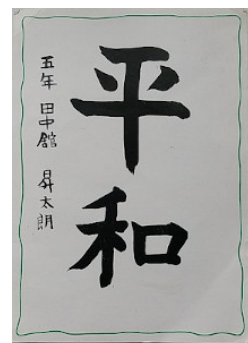 平和
五年 田中舘 昇太朗